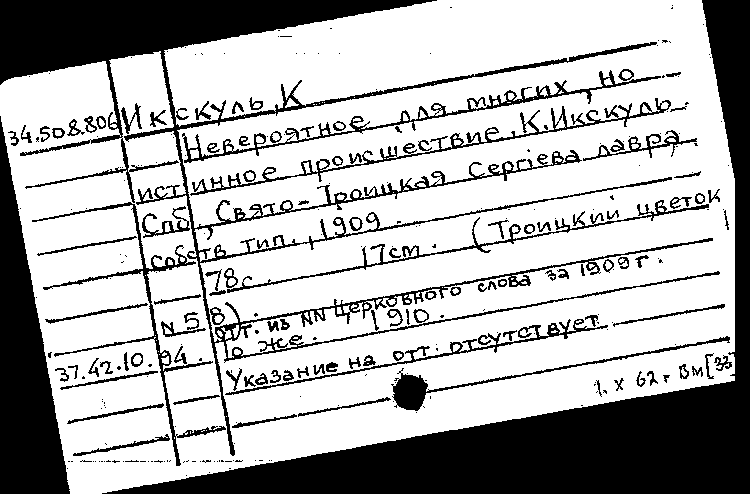 34.508.806 Икскуль, К
Невероятное для многих, но
истинное происшествие, К. Икскуль.
Спб, Свято-Троицкая Сергіева лавра,
собств тип., 1909.
78с. 17см. (Троицкий цветок
N 58).
отт. из NN Церковного слова за 1909г.
37.42.10.94. То же. 1910.
Указание на отт. отсутствует
1. X 62г Вм[33]